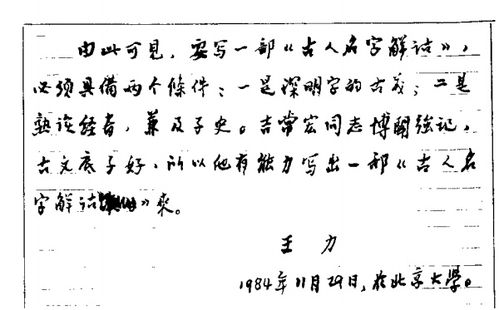 由此可見，要写一部《古人名字解诂》，
必須具備两个條件：一是深明字的古义；二是
熟读经書，兼及子史。吉常宏同志博聞強记，
古文底子好，所以他有能力写出一部《古人名
字解诂》来。
王力
1984年11月29日，於北京大學。